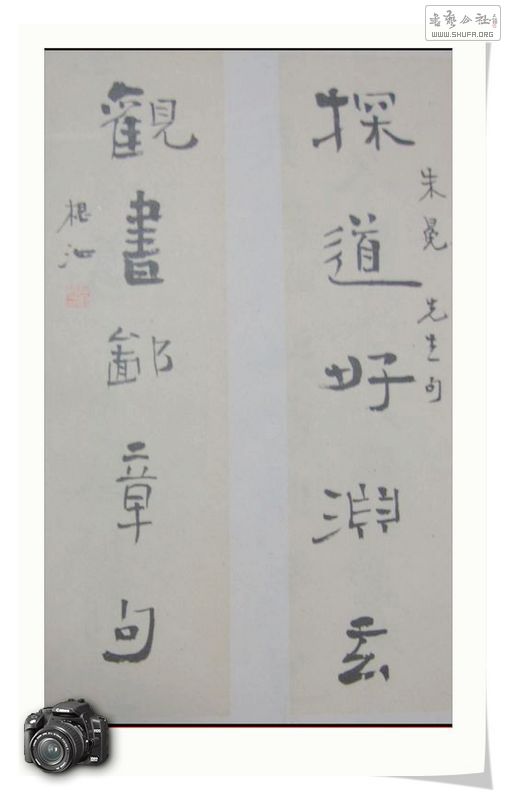 書藝公社
WWW.SHUFA.ORG
朱冕 先生句
探道好淵玄
觀書鄙章句
根
Canon